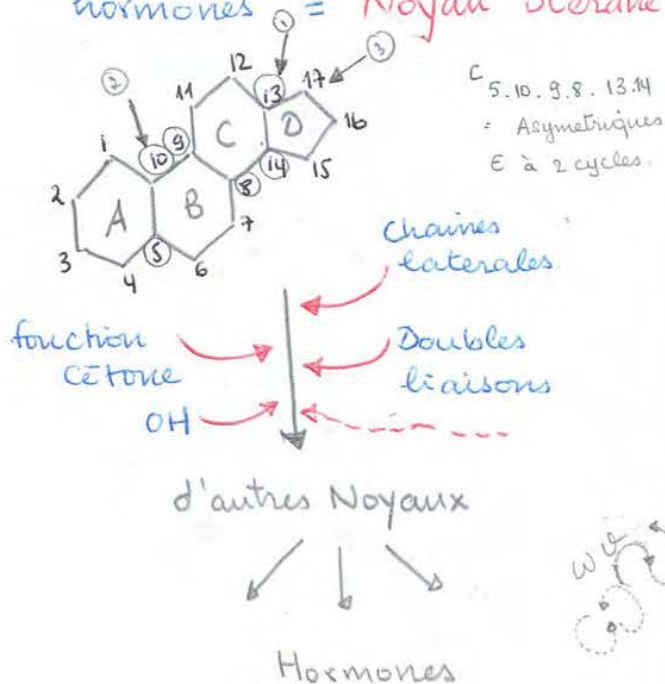 hormones = Noyau Sterane
①
② ③
12
11 13 17
1 10 9 C D 16
2 14 15
A B 8
3 5 7
4 6
C 5.10.9.8.13.14
: Asymetriques
∈ à 2 cycles.
chaines
laterales.
fonction
Cētone
Doubles
liaisons
OH
d'autres Noyaux
Hormones